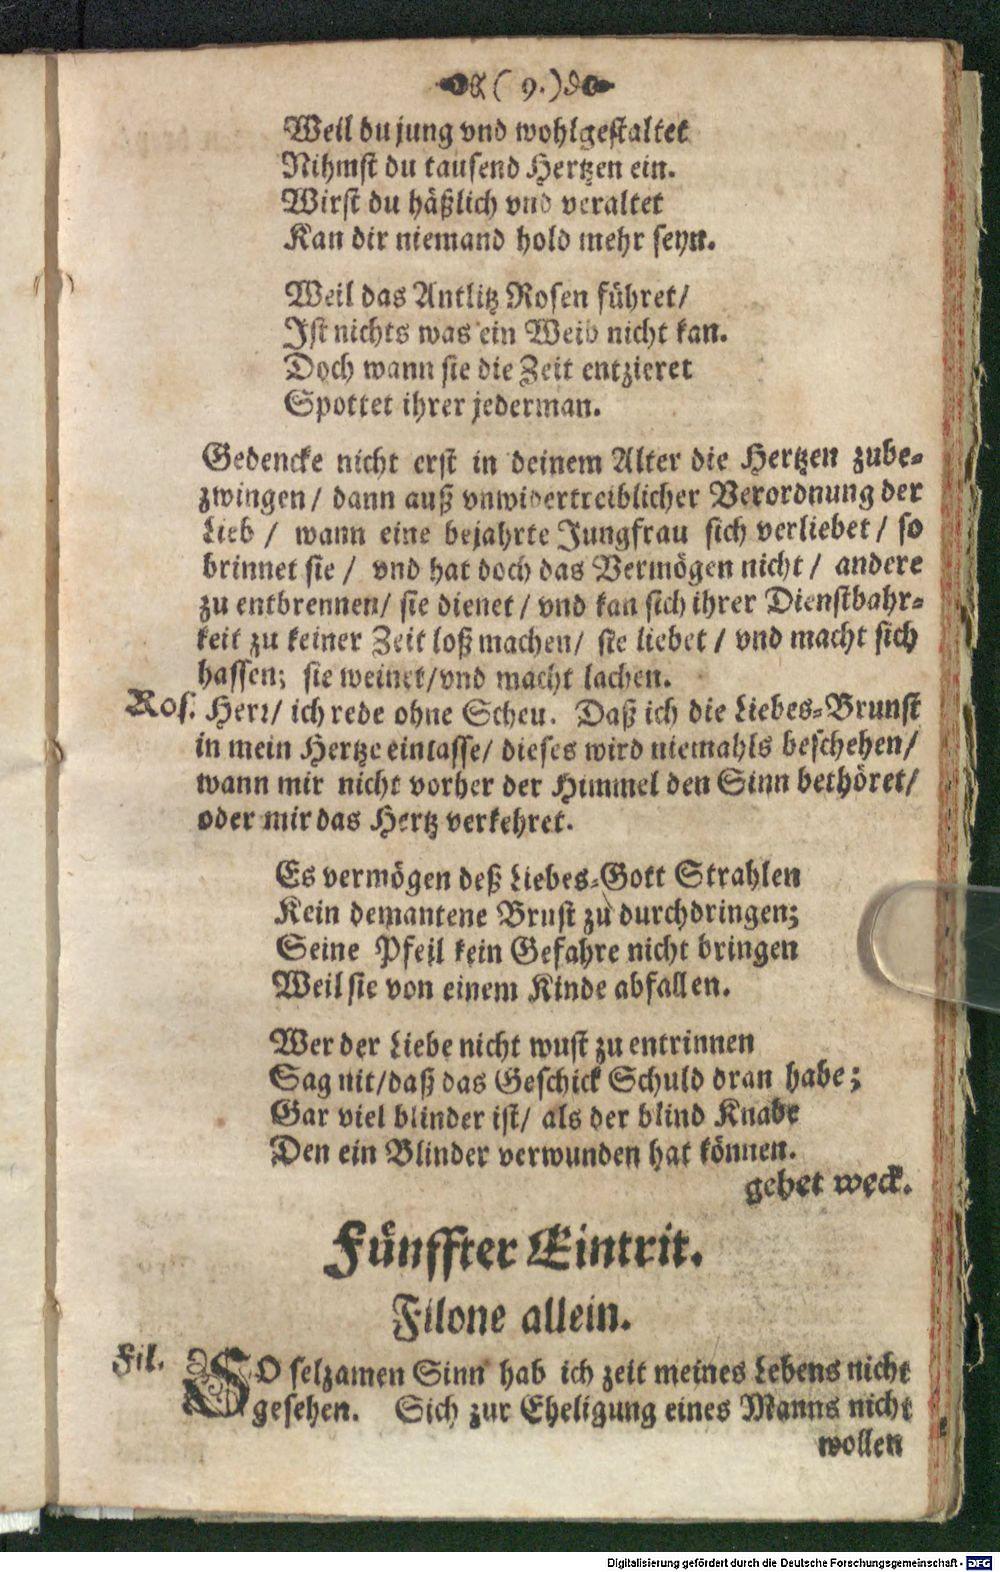 ( 9. )
Weil du jung vnd wohlgestaltet
Nihmst du tausend Hertzen ein.
Wirst du häßlich vnd veraltet
Kan dir niemand hold mehr seyn.
Weil das Antlitz Rosen führet/
Ist nichts was ein Weib nicht kan.
Doch wann sie die Zeit entzieret
Spottet ihrer jederman.
Gedencke nicht erst in deinem Alter die Hertzen zube-
zwingen/ dann auß vnwidertreiblicher Verordnung der
Lieb / wann eine bejahrte Jungfrau sich verliebet / so
brinnet sie / vnd hat doch das Vermögen nicht / andere
zu entbrennen/ sie dienet / vnd kan sich ihrer Dienstbahr-
keit zu keiner Zeit loß machen/ sie liebet / vnd macht sich
hassen; sie weinet/vnd macht lachen.
Ros. Herr/ ich rede ohne Scheu. Daß ich die Liebes-Brunst
in mein Hertze einlasse/ dieses wird niemahls beschehen/
wann mir nicht vorher der Himmel den Sinn bethöret/
oder mir das Hertz verkehret.
Es vermögen deß Liebes-Gott Strahlen
Kein demantene Brust zu durchdringen;
Seine Pfeil kein Gefahre nicht bringen
Weil sie von einem Kinde abfallen.
Wer der Liebe nicht wust zu entrinnen
Sag nit/daß das Geschick Schuld dran habe;
Gar viel blinder ist/ als der blind Knabe
Den ein Blinder verwunden hat können.
gehet weck.
Fünffter Eintrit.
Filone allein.
Fil. SO selzamen Sinn hab ich zeit meines Lebens nicht
gesehen. Sich zur Eheligung eines Manns nicht
wollen
Digitalisierung gefördert durch die Deutsche Forschungsgemeinschaft - DFG